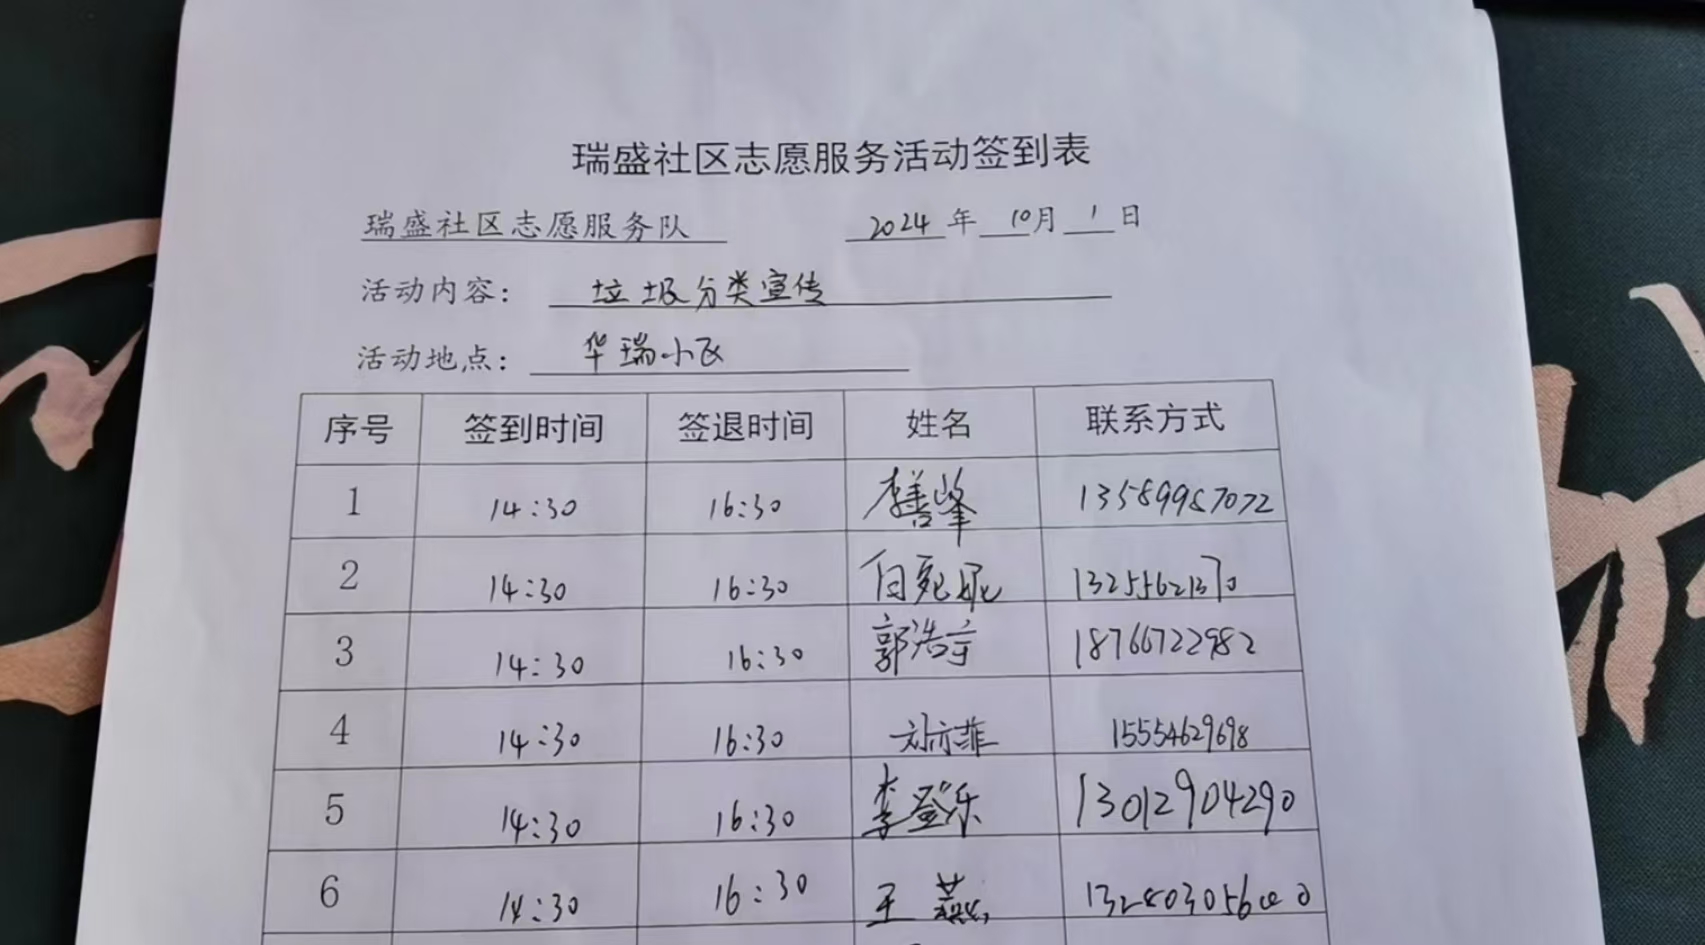 瑞盛社区志愿服务活动签到表
瑞盛社区志愿服务队 2024年10月1日
活动内容: 垃圾分类宣传
活动地点: 华瑞小区
序号 签到时间 签退时间 姓名 联系方式
1 14:30 16:30 李善峰 13589987072
2 14:30 16:30 13255621370
3 14:30 16:30 郭浩宇 18766722982
4 14:30 16:30 刘亦菲 15554629698
5 14:30 16:30 李登乐 13012904290
6 14:30 16:30 王燕